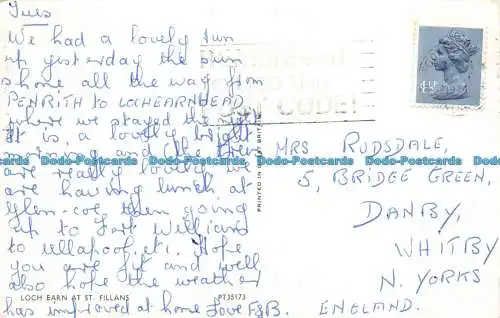 Tues
We had a lovely run
up yesterday the sun
shone all the way from
PENRITH to LOCHEARNHEAD
where we stayed the night
It is a lovely bright
morning and the trees
are really lovely we
are having lunch at
Glen-coe then going
up to Fort William
to ullapool. etc. Hope
you are fit and well
also hope the weather
has improved at home Love F&B.
LOCH EARN AT ST. FILLANS
PT35173
PRINTED IN GREAT BRITAIN
CODE!
4½P
MRS RUDSDALE,
5, BRIDGE GREEN,
DANBY,
WHITBY
N. YORKS
ENGLAND.
Dodo-Postcards.com